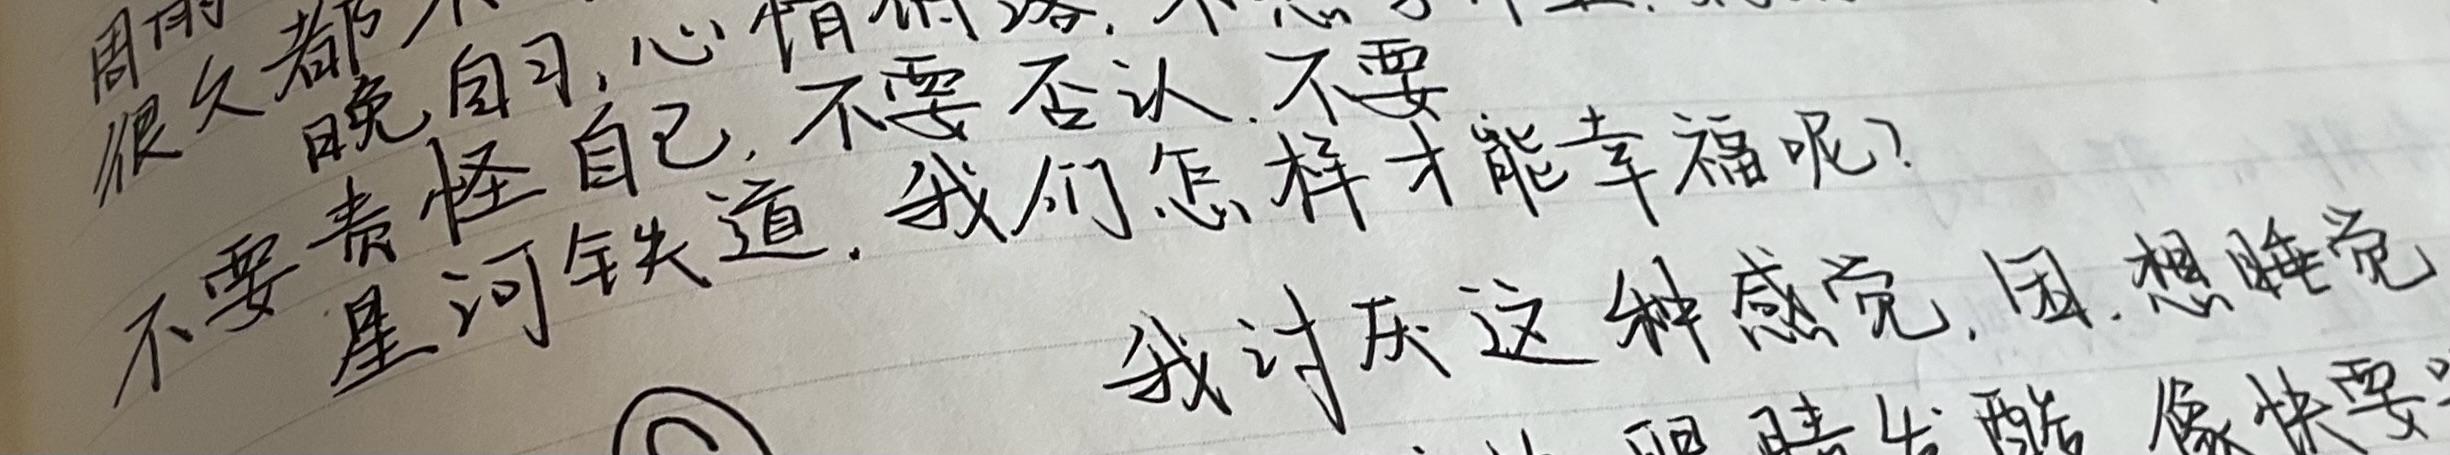 周雨
很久都不
晚自习,心情低落.不想写作业.
不要责怪自己,不要否认.不要
星河铁道.我们怎样才能幸福呢?
我讨厌这种感觉,困.想睡觉
眼睛发酸 像快要